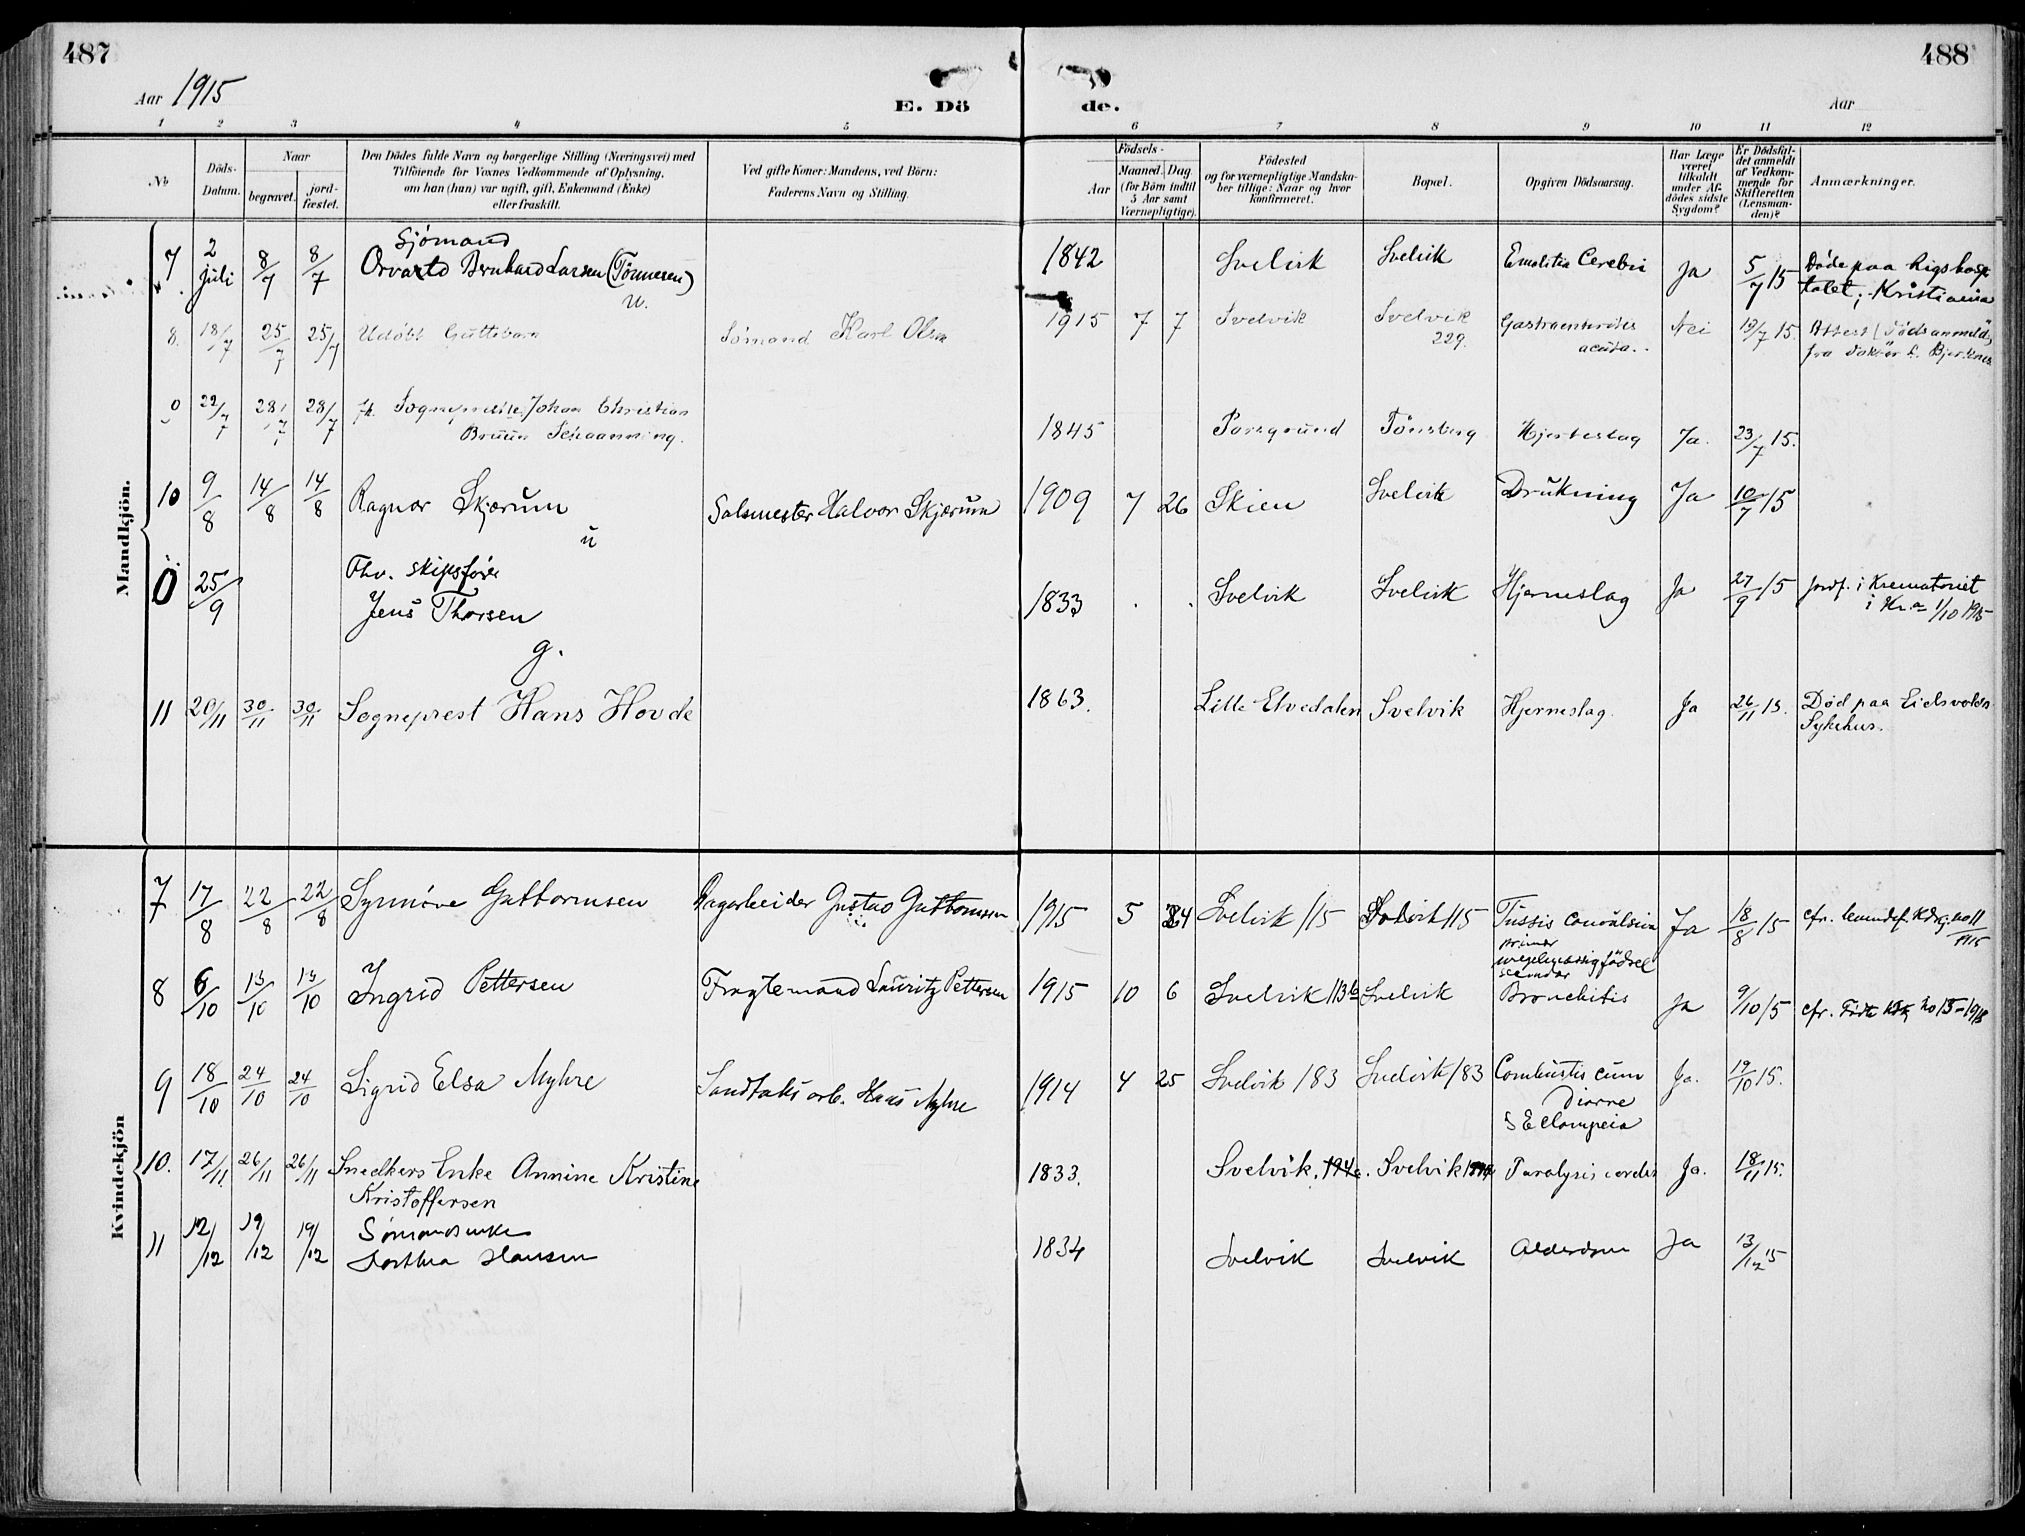 487
488
Aar 1915
E. Dö
de.
Aar
1 2 3 4 5 6 7 8 9 10 11 12
№
Döds-
Datum.
Naar
begravet.
jord-
fæstet.
Den Dödes fulde Navn og borgerlige Stilling (Næringsvei) med
Tilföiende for Voxnes Vedkommende af Oplysning,
om han (hun) var ugift, gift, Enkemand (Enke)
eller fraskilt.
Ved gifte Koner: Mandens, ved Börn:
Faderens Navn og Stilling.
Födsels-
Aar
Maaned. Dag.
(for Börn indtil
5 Aar samt
Værnepligtige).
Födested
og for værnepligtige Mandska-
ber tillige: Naar og hvor
konfirmeret.
Bopæl.
Opgiven Dödsaarsag.
Har Læge
været
tilkaldt
under Af-
dödes sidste
Sygdom?
Er Dödsfal-
det anmeldt
af Vedkom-
mende for
Skifteretten
(Lensman-
den)?
Anmærkninger.
Mandkjön.
7 2 juli 8/7 8/7 Sjömand
Bernhard Larsen (Tönnesen)
u.
1842 Svelvik Svelvik Emolitia Cerebri Ja 5/7 15 Döde paa Rigshospi
talet, Kristiania
8. 18/7 25/7 25/7 Udöbt Guttebarn Sömand Karl Olsen 1915 7 7 Svelvik Svelvik
229. Gastroenteritis
acuta. Nei 19/7 15. Attest (Dödsanmeld)
fra doktor
9 22/7 28/7 28/7 fh. Sogneprest Johan Christian
Bruun Schaanning.
1845 Porsgrund Tönsberg Hjerteslag Ja. 23/7 15.
10 9/8 14/8 14/8 Ragnar Skjærum
u
Salsmester Halvor Skjærum 1909 7 26 Skien Svelvik Drukning Ja 10/7 15
0 25/9 Fhv. skipsförer
Jens Thorsen
g.
1833 Svelvik Svelvik Hjerneslag Ja 27/9 15 jordf. i Krematoriet
i Kr.a 1/10 1915
11 20/11 30/11 30/11 Sogneprest Hans Hovde 1863. Lille Elvedalen Svelvik Hjerneslag. Ja 26/11 15. Död paa Eidsvolds
Sykehus.
Kvindekjön
7 17/8 22/8 22/8 Synnöve Guttormsen Dagarbeider Gustav Guttormsen 1915 5 24 Svelvik 115 Svelvik 115 Tussis convulsiva Ja 18/8 15 cfr. no 11
1915
8 6/10 13/10 13/10 Ingrid Pettersen Fragtemand Lauritz Pettersen 1915 10 6 Svelvik 113b Svelvik primær
uregelmæssig födsel
secundær
Bronchitis Ja 9/10 15 cfr. Födte Kdk. no 15 1915
9 18/10 24/10 24/10 Sigrid Elsa Myhre Sandtaksarb. Hans Myhre 1914 4 25 Svelvik 183 Svelvik 183 Combustis cum
Diarre
S Eclampsia Ja. 19/10 15.
10. 17/11 26/11 26/11 Snedkers Enke Annine Kristine
Kristoffersen
1833. Svelvik. Svelvik Paralysis cordis Ja. 18/11 15.
11 12/12 19/12 19/12 Sömandsenke
Dorthea Hansen
1834 Svelvik Svelvik Alderdom Ja 13/12 15